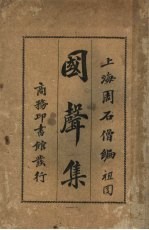 上海周石僧編 祖同
國聲集
商務印書館發行